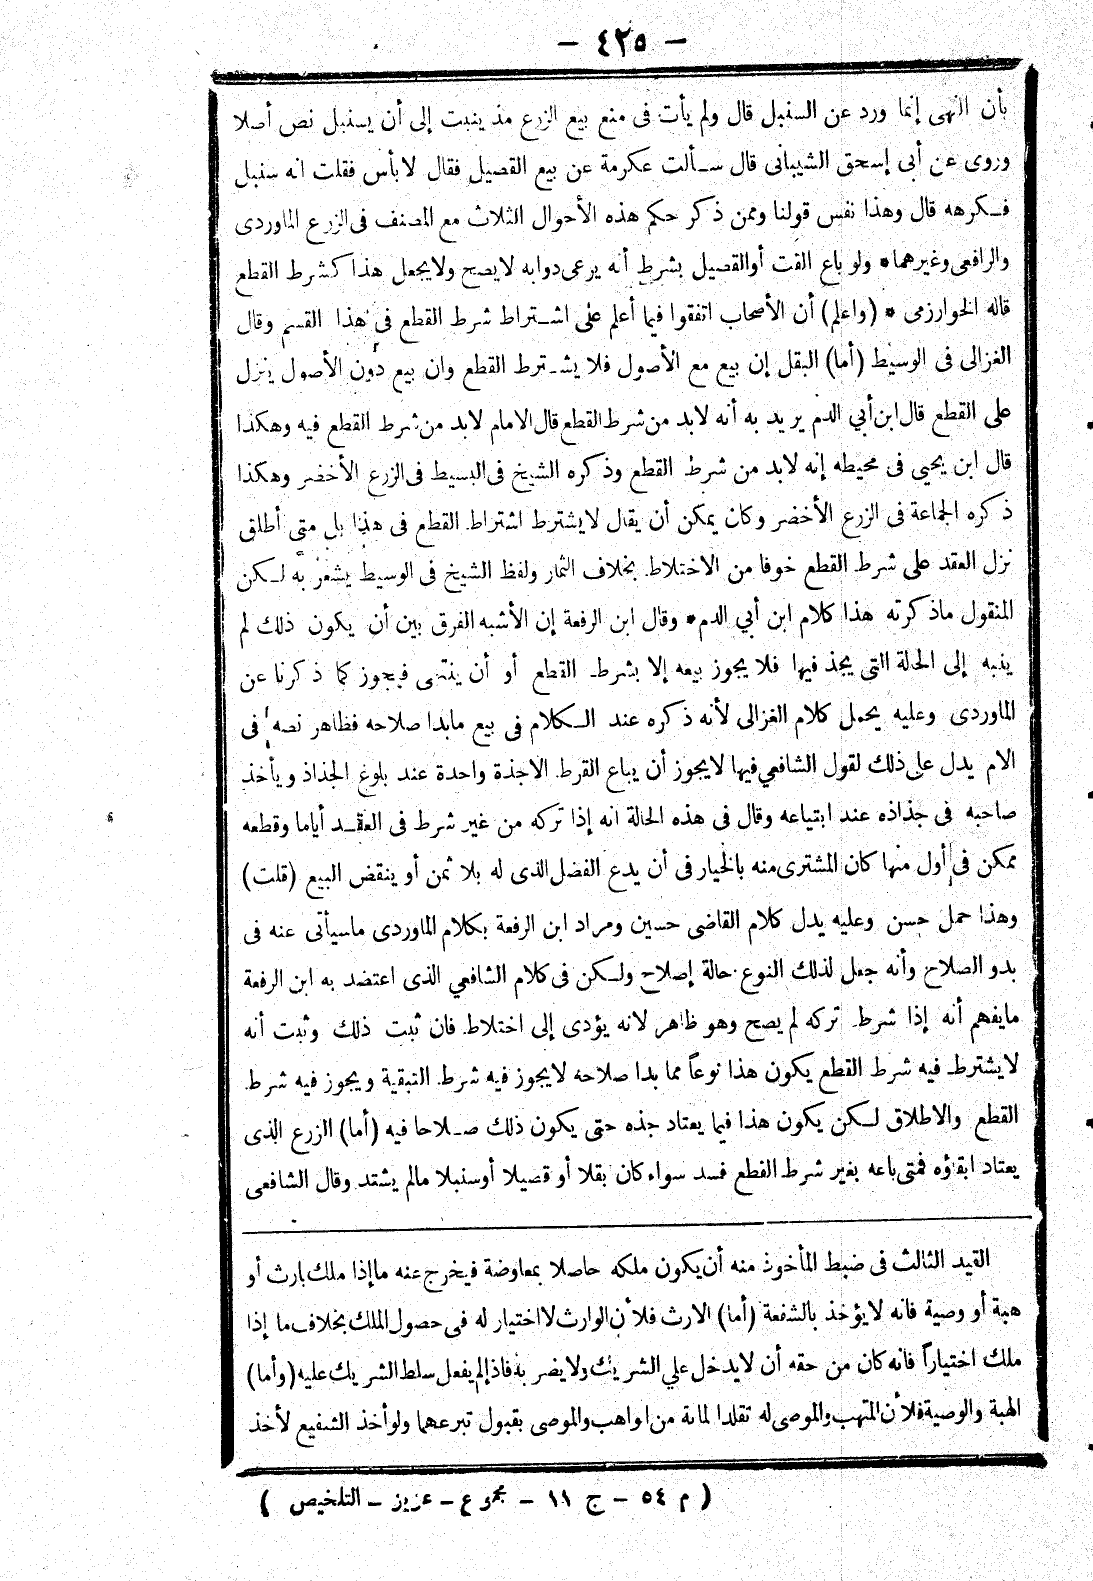 — ٤٢٥ —
بأن النهى إنما ورد عن السنبل قال ولم يأت فى منع بيع الزرع مذ ينبت إلى أن يسنبل نص أصلا
وروى عن أبى إسحق الشيبانى قال سـألت عكرمة عن بيع القصيل فقال لا بأس فقلت انه سنبل
فـكرهه قال وهذا نفس قولنا وممن ذكر حكم هذه الأحوال الثلاث مع المصنف فى الزرع الماوردى
والرافعى وغيرهما * ولو باع القت أو القصيل بشرط أنه يرعى دوابه لا يصح ولا يجعل هذا كشرط القطع
قاله الخوارزمى * (واعلم) أن الأصحاب اتفقوا فيما أعلم على اشـتراط شرط القطع فى هذا القسم وقال
الغزالى فى الوسيط (أما) البقل إن بيع مع الأصول فلا يشـترط القطع وان بيع دون الأصول ينزل
على القطع قال ابن أبي الدم يريد به أنه لابد من شرط القطع قال الامام لابد من شرط القطع فيه وهكذا
قال ابن يحيى فى محيطه إنه لابد من شرط القطع وذكره الشيخ فى البسيط فى الزرع الأخضر وهكذا
ذكره الجماعة فى الزرع الأخضر وكان يمكن أن يقال لا يشترط اشتراط القطع فى هذا بل متى أطلق
نزل العقد على شرط القطع خوفا من الاختلاط بخلاف الثمار ولفظ الشيخ فى الوسيط يشعر به لـكن
المنقول ماذكرته هذا كلام ابن أبي الدم * وقال ابن الرفعة إن الأشبه الفرق بين أن يكون ذلك لم
ينبه إلى الحالة التى يجذ فيها فلا يجوز بيعه إلا بشرط القطع أو أن ينتهى فيجوز كما ذكرنا عن
الماوردى وعليه يحمل كلام الغزالى لأنه ذكره عند الـكلام فى بيع مابدا صلاحه فظاهر نصه فى
الام يدل على ذلك لقول الشافعي فيها لا يجوز أن يباع القرط الاجذة واحدة عند بلوغ الجذاذ ويأخذ
صاحبه فى جذاذه عند ابتياعه وقال فى هذه الحالة انه إذا تركه من غير شرط فى العقـد أياما وقطعه
ممكن فى أول منها كان المشترى منه بالخيار فى أن يدع الفضل الذى له بلا ثمن أو ينقض البيع (قلت)
وهذا حمل حسن وعليه يدل كلام القاضى حسين ومراد ابن الرفعة بكلام الماوردى ماسيأتى عنه فى
بدو الصلاح وأنه جعل لذلك النوع حالة إصلاح ولـكن فى كلام الشافعي الذى اعتضد به ابن الرفعة
مايفهم أنه إذا شرط تركه لم يصح وهو ظاهر لانه يؤدى إلى اختلاط فان ثبت ذلك وثبت أنه
لا يشترط فيه شرط القطع يكون هذا نوعاً مما بدا صلاحه لا يجوز فيه شرط التبقية ويجوز فيه شرط
القطع والاطلاق لـكن يكون هذا فيما يعتاد جذه حتى يكون ذلك صـلاحا فيه (أما) الزرع الذى
يعتاد ابقاؤه فمتى باعه بغير شرط القطع فسد سواء كان بقلا أو قصيلا أو سنبلا مالم يشتد وقال الشافعى
القيد الثالث فى ضبط المأخوذ منه أن يكون ملكه حاصلا بمعاوضة فيخرج عنه ما إذا ملك بارث أو
هبة أو وصية فانه لا يؤخذ بالشفعة (أما) الارث فلأن الوارث لا اختيار له فى حصول الملك بخلاف ما إذا
ملك اختياراً فانه كان من حقه أن لا يدخل علي الشريك ولا يضر به فاذا لم يفعل سلط الشريك عليه (وأما)
الهبة والوصية فلأن المتهب والموصى له تقلدا لمانة من الواهب والموصى بقبول تبرعهما ولو أخذ الشفيع لأخذ
( م ٥٤ – ج ١١ – مجموع – عزيز – التلخيص )